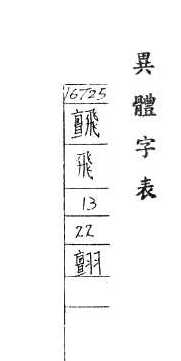 異體字表
16725
飛
13
22